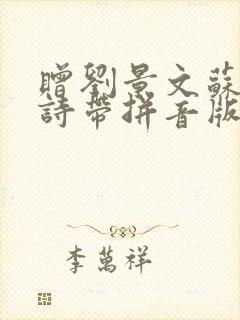 贈劉景文蘇
詩帶拼音版
李萬祥